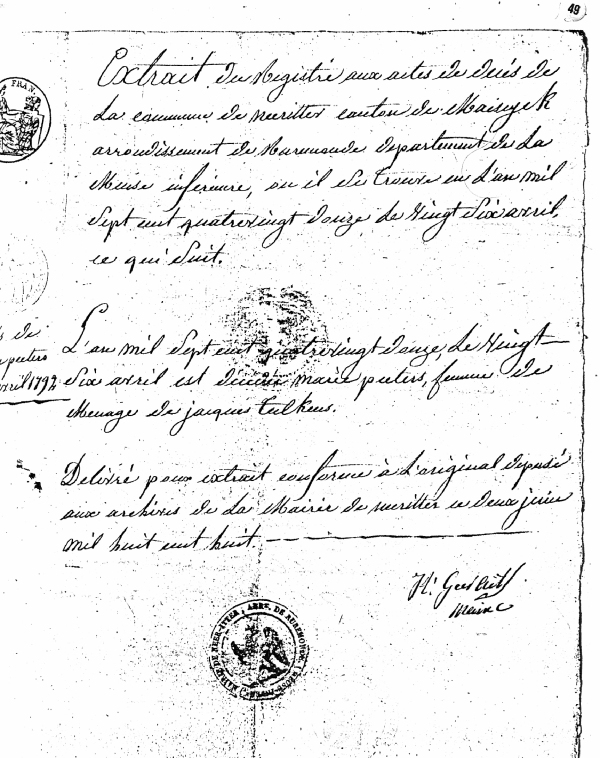 49
Extrait du Registre aux actes de decés de
La commune de neeritter canton de Maiseyck
arrondissement de Ruremonde departement de La
Meuse inferieure, ou il se trouve en L'an mil
Sept cent quatrevingt douze, Le Vingt Six avril,
ce qui Suit.
FRAN.
L'an mil Sept cent quatrevingt douze, Le Vingt
Six avril est décédée marie peeters, femme de
Menage de jacques Tulkens.
de
peeters
avril 1792
Delivré pour extrait conforme à L'original deposé
aux archives de La Mairie de neeritter ce deux juin
mil huit cent huit.
maire
MAIRIE DE NEER-ITTER, ARRT. DE RUREMONDE